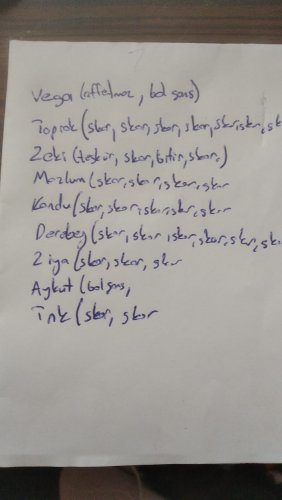 Vega (affetmez, bol şans)
Toprak (skor, skor, skor, skor, skor, skor, sk
Zeki (teşkür, skor, bitir, skor.)
Mazlum (skor, skor, skor, skor
Kandu (skor, skor, skor, skor, skor
Derebey (skor, skor, skor, skor, skor, sk
Ziya (skor, skor, skor
Aykut (bol şans,
Tnk (skor, skor